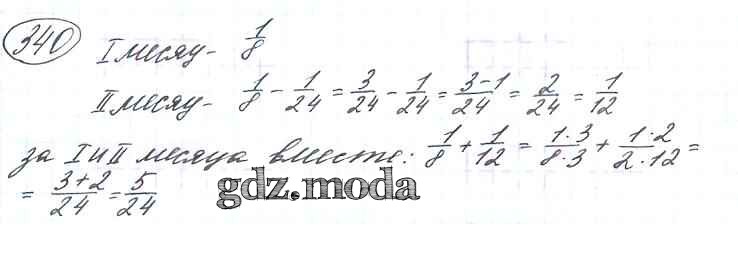 340
I месяц - 1/8
II месяц - 1/8 - 1/24 = 3/24 - 1/24 = 3-1/24 = 2/24 = 1/12
за I и II месяца вместе: 1/8 + 1/12 = 1·3/8·3 + 1·2/2·12 =
= 3+2/24 = 5/24
gdz.moda